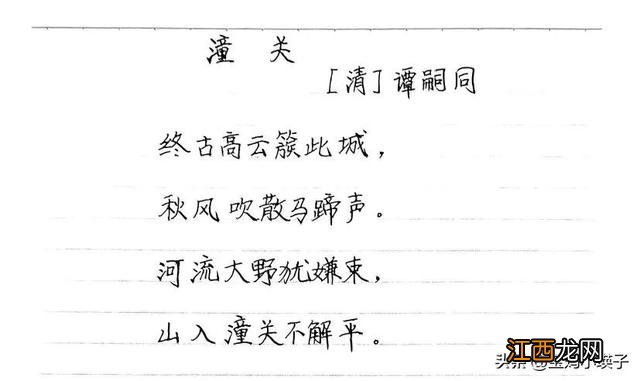 潼关
[清]谭嗣同
终古高云簇此城，
秋风吹散马蹄声。
河流大野犹嫌束，
山入潼关不解平。
江西龙网